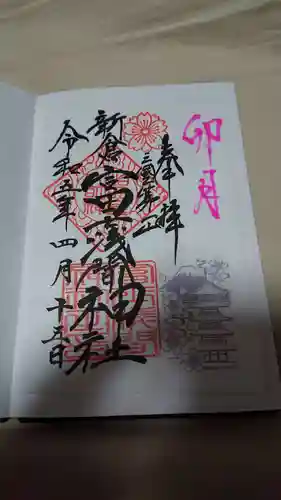 卯月
奉拝
三國第一山
新倉富士浅間神社
令和五年四月十五日